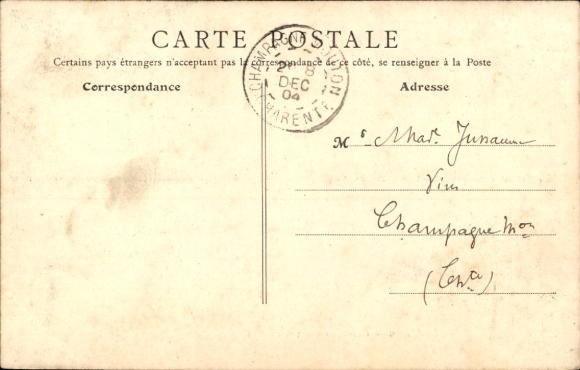 CARTE POSTALE
Certains pays étrangers n'acceptant pas la correspondance de ce côté, se renseigner à la Poste
Correspondance
Adresse
CHAMPAGNE MOUTON
DEC
04
CHARENTE
M
Champagne Mon
(Chte)